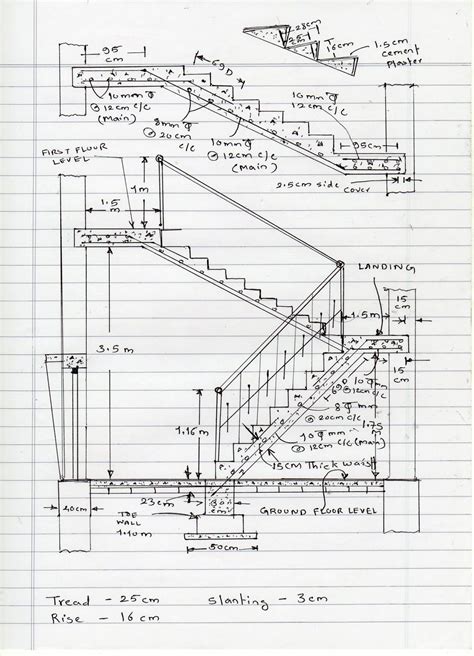 23cm
25
16cm
1.5cm
cement
Plaster
95
cm
69D
10mm φ
@ 12cm c/c
(Main)
8mm φ
@ 20cm
c/c
10mm φ
@ 12cm c/c
(Main)
10mm φ
12cm c/c
95cm
2.5cm side
cover
FIRST FLOOR
LEVEL
1m
1.5
m
LANDING
1.5m
15
cm
15
cm
3.5m
69D
10 φ mm
@ 12cm c/c
8 φ mm
@ 20cm c/c
1.75
m
10 φ mm
@ 12cm c/c (Main)
15cm Thick Waist
1.16m
40cm
23cm
TOE
WALL
1.10m
30
cm
GROUND FLOOR LEVEL
50cm
Tread - 25cm
Slanting - 3cm
Rise - 16cm